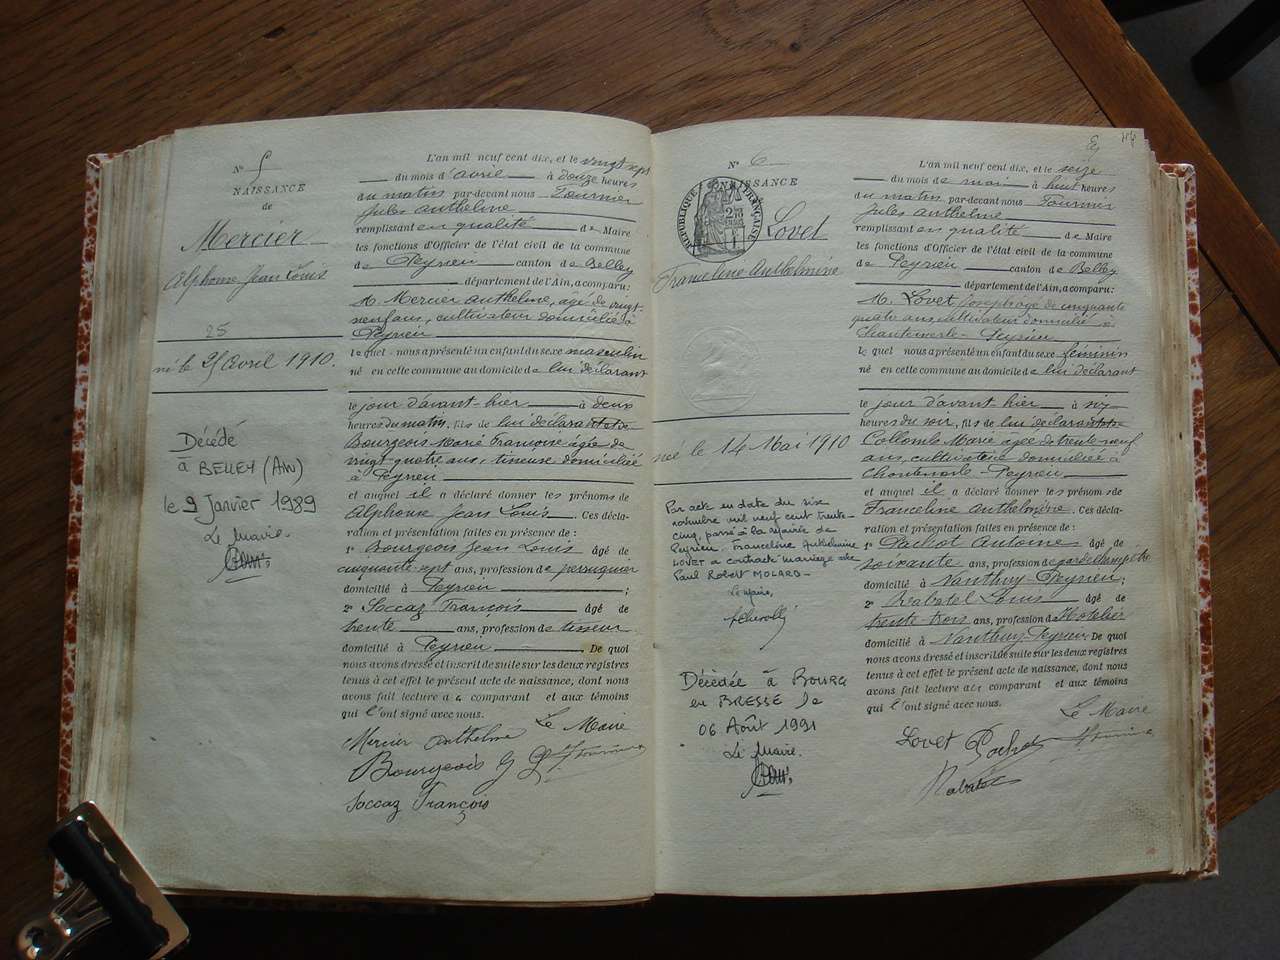 N° 5
NAISSANCE
de
Mercier
Alphonse Jean Louis
25
né le 25 Avril 1910.
Décédé
à BELLEY (AIN)
le 9 Janvier 1989
Le Maire.
L'an mil neuf cent dix, et le vingt sept
du mois d'avril à douze heures
du matin par-devant nous Tournier
Jules Anthelme
remplissant en qualité de Maire
les fonctions d'Officier de l'état civil de la commune
de Peyrieu canton de Belley
département de l'Ain, a comparu:
M. Mercier Anthelme, âgé de vingt-
neuf ans, cultivateur domicilié à
Peyrieu
lequel nous a présenté un enfant du sexe masculin
né en cette commune au domicile de lui déclarant
le jour d'avant-hier à deux
heures du matin, fils de lui déclarant et de
Bourgeois Marie Françoise âgée de
vingt quatre ans, tisseuse domiciliée
à Peyrieu
et auquel il a déclaré donner les prénoms de
Alphonse Jean Louis. Ces décla-
ration et présentation faites en présence de :
1° Bourgeois Jean Louis âgé de
cinquante-sept ans, profession de perruquier
domicilié à Peyrieu ;
2° Soccaz François âgé de
trente ans, profession de tisseur
domicilié à Peyrieu De quoi
nous avons dressé et inscrit de suite sur les deux registres
tenus à cet effet le présent acte de naissance, dont nous
avons fait lecture au comparant et aux témoins
qui l'ont signé avec nous.
Le Maire
Mercier Anthelme
Bourgeois J L
Soccaz François
N° 6
NAISSANCE
RÉPUBLIQUE FRANÇAISE
Lovet
Franceline Anthelmine
née le 14 Mai 1910
Par acte en date du six
novembre mil neuf cent trente-
cinq, passé à la mairie de
Peyrieu, Franceline Anthelmine
LOVET a contracté mariage avec
Paul Robert MOLARD
Le Maire,
Décédée à BOURG
en BRESSE le
06 Août 1991
Le Maire.
L'an mil neuf cent dix, et le seize
du mois de mai à huit heures
du matin par-devant nous Tournier
Jules Anthelme
remplissant en qualité de Maire
les fonctions d'Officier de l'état civil de la commune
de Peyrieu canton de Belley
département de l'Ain, a comparu:
M. Lovet Joseph âgé de cinquante
quatre ans, cultivateur domicilié à
Chantemerle-Peyrieu
lequel nous a présenté un enfant du sexe féminin
né en cette commune au domicile de lui déclarant
le jour d'avant-hier à six
heures du soir, fils de lui déclarant et de
Collomb Marie âgée de trente neuf
ans, cultivatrice domiciliée à
Chantemerle-Peyrieu
et auquel il a déclaré donner les prénoms de
Franceline Anthelmine. Ces décla-
ration et présentation faites en présence de :
1° Pachot Antoine âgé de
soixante ans, profession de garde champêtre
domicilié à Nanthuy-Peyrieu;
2° Rabatel Louis âgé de
trente trois ans, profession d'Hôtelier
domicilié à Nanthuy-Peyrieu. De quoi
nous avons dressé et inscrit de suite sur les deux registres
tenus à cet effet le présent acte de naissance, dont nous
avons fait lecture au comparant et aux témoins
qui l'ont signé avec nous.
Le Maire
Lovet Pachot
Rabatel